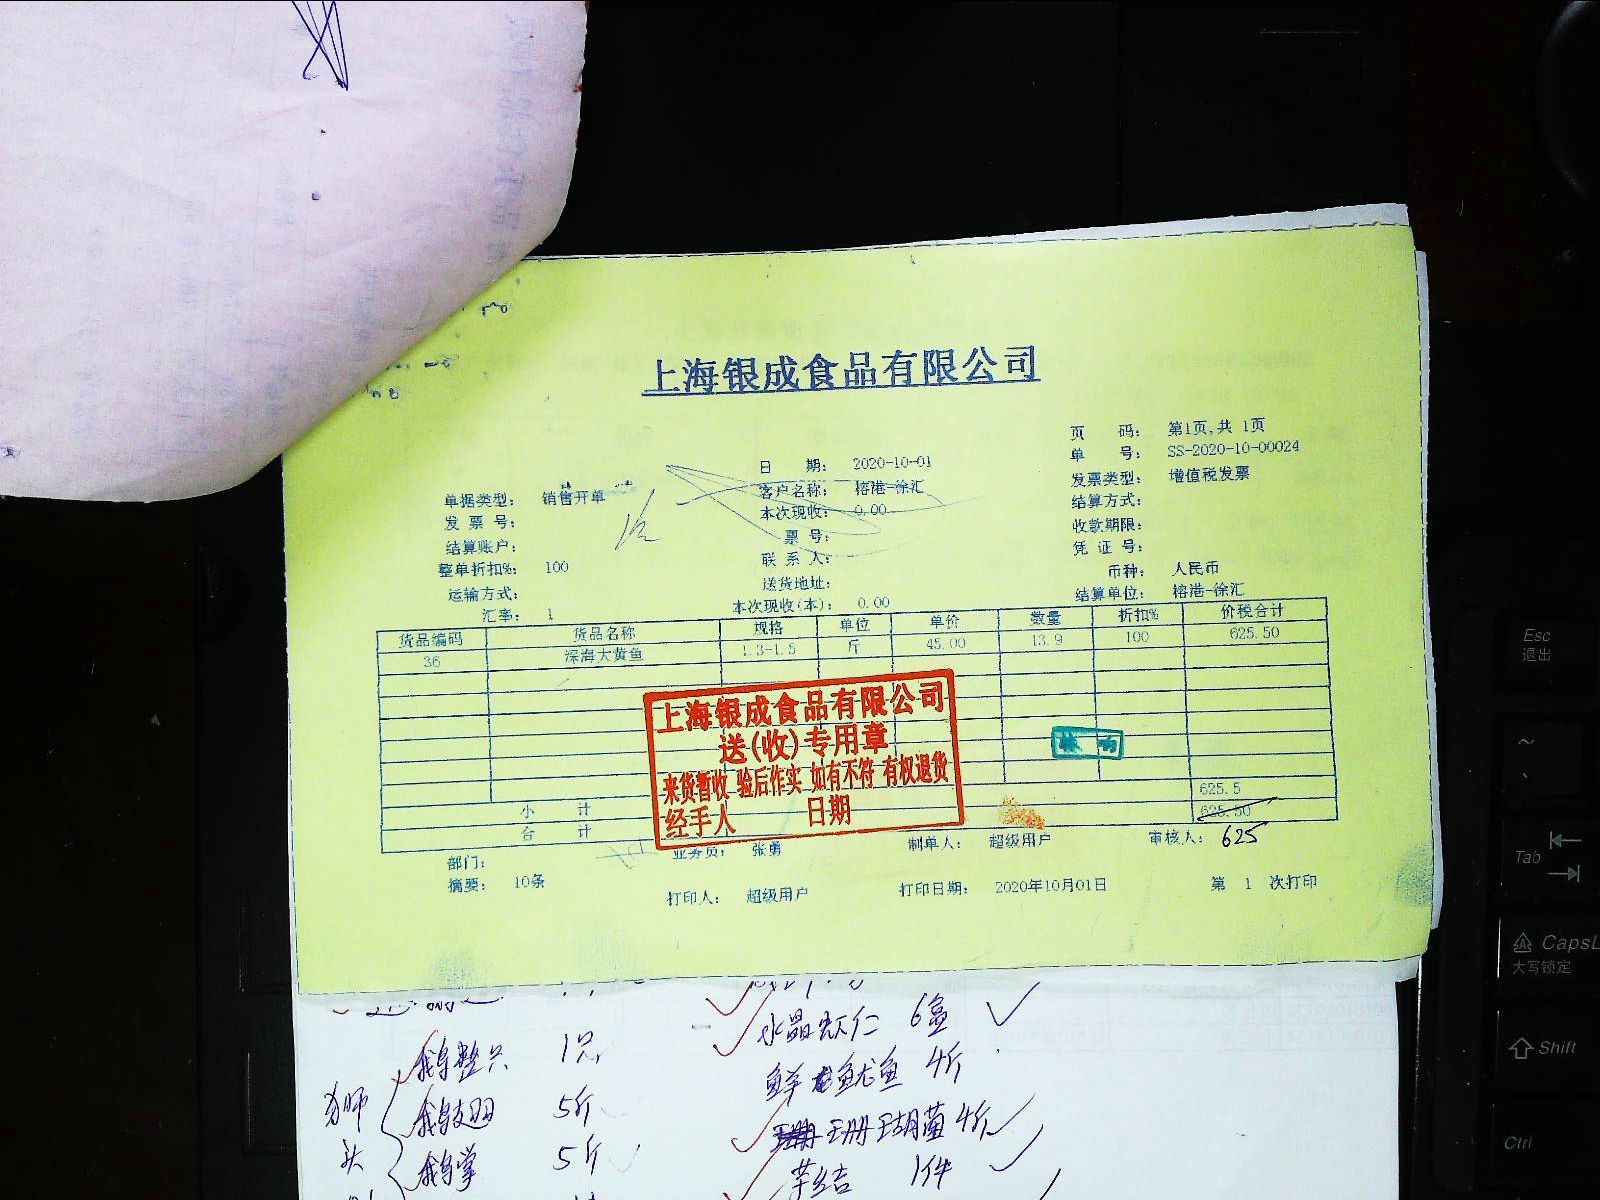 上海银成食品有限公司
页 码： 第1页,共 1页
单 号： SS-2020-10-00024
日 期： 2020-10-01
发票类型： 增值税发票
单据类型： 销售开单
客户名称： 榕港-徐汇
结算方式：
发 票 号：
本次现收： 0.00
收款期限：
结算账户：
票 号：
凭 证 号：
整单折扣%： 100
联 系 人：
币种： 人民币
运输方式：
送货地址：
结算单位： 榕港-徐汇
汇率： 1
本次现收(本)： 0.00
货品编码 货品名称 规格 单位 单价 数量 折扣% 价税合计
36 深海大黄鱼 1.3-1.5 斤 45.00 13.9 100 625.50
上海银成食品有限公司
送(收)专用章
来货暂收 验后作实 如有不符 有权退货
经手人 日期
小 计 625.5
合 计 625.50
625
部门： 业务员： 张勇 制单人： 超级用户 审核人：
摘要： 10条
打印人： 超级用户 打印日期： 2020年10月01日 第 1 次打印
水晶虾仁 6盒
鹅整只 1只
鲜鱿鱼 4斤
鹅翅 5斤
珊瑚菌 4斤
狮头
鹅掌 5斤
1件
Esc
退出
Tab
CapsL
大写锁定
Shift
Ctrl